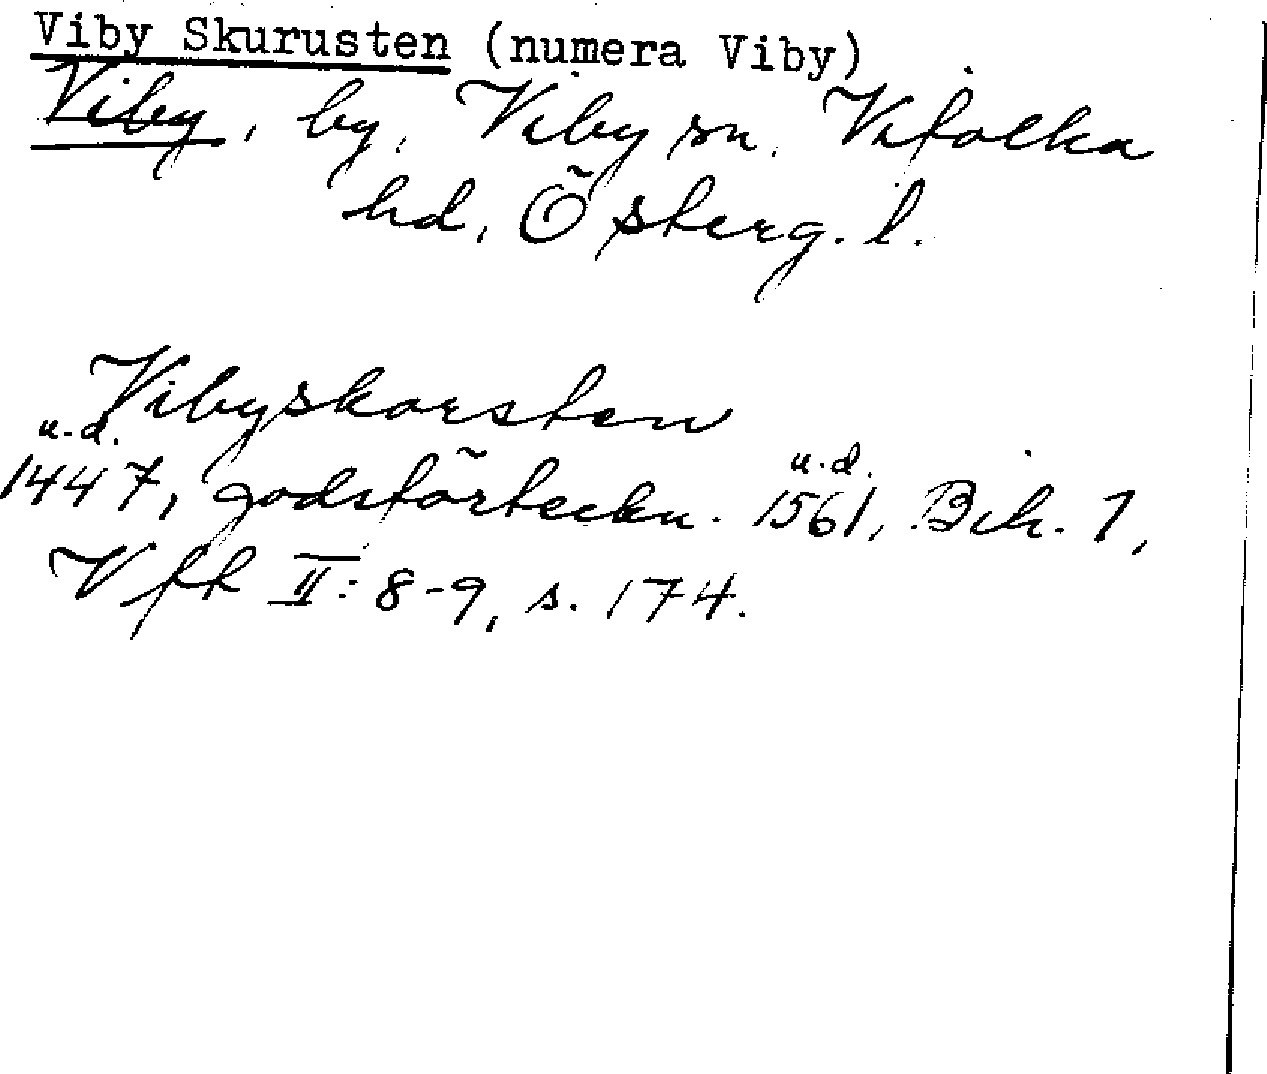 Viby Skurusten (numera Viby)
Viby, by, Viby sn. Vifolka
hd, Österg. l.
Vibyskorsten
u.d. u.d.
1447, godsförteckn. 1561, Bih. 1,
Vfk II: 8-9, s. 174.